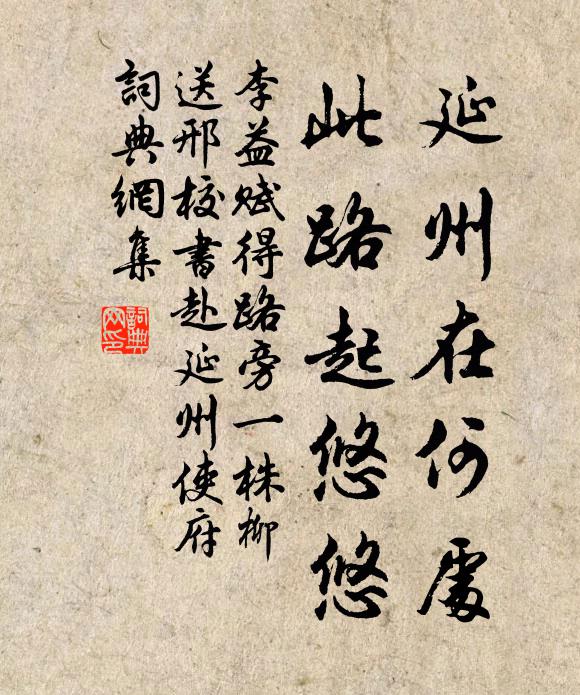 延州在何處
此路起悠悠
李益賦得路旁一株柳
送邢校書赴延州使府
詞典網集
詞典
網印